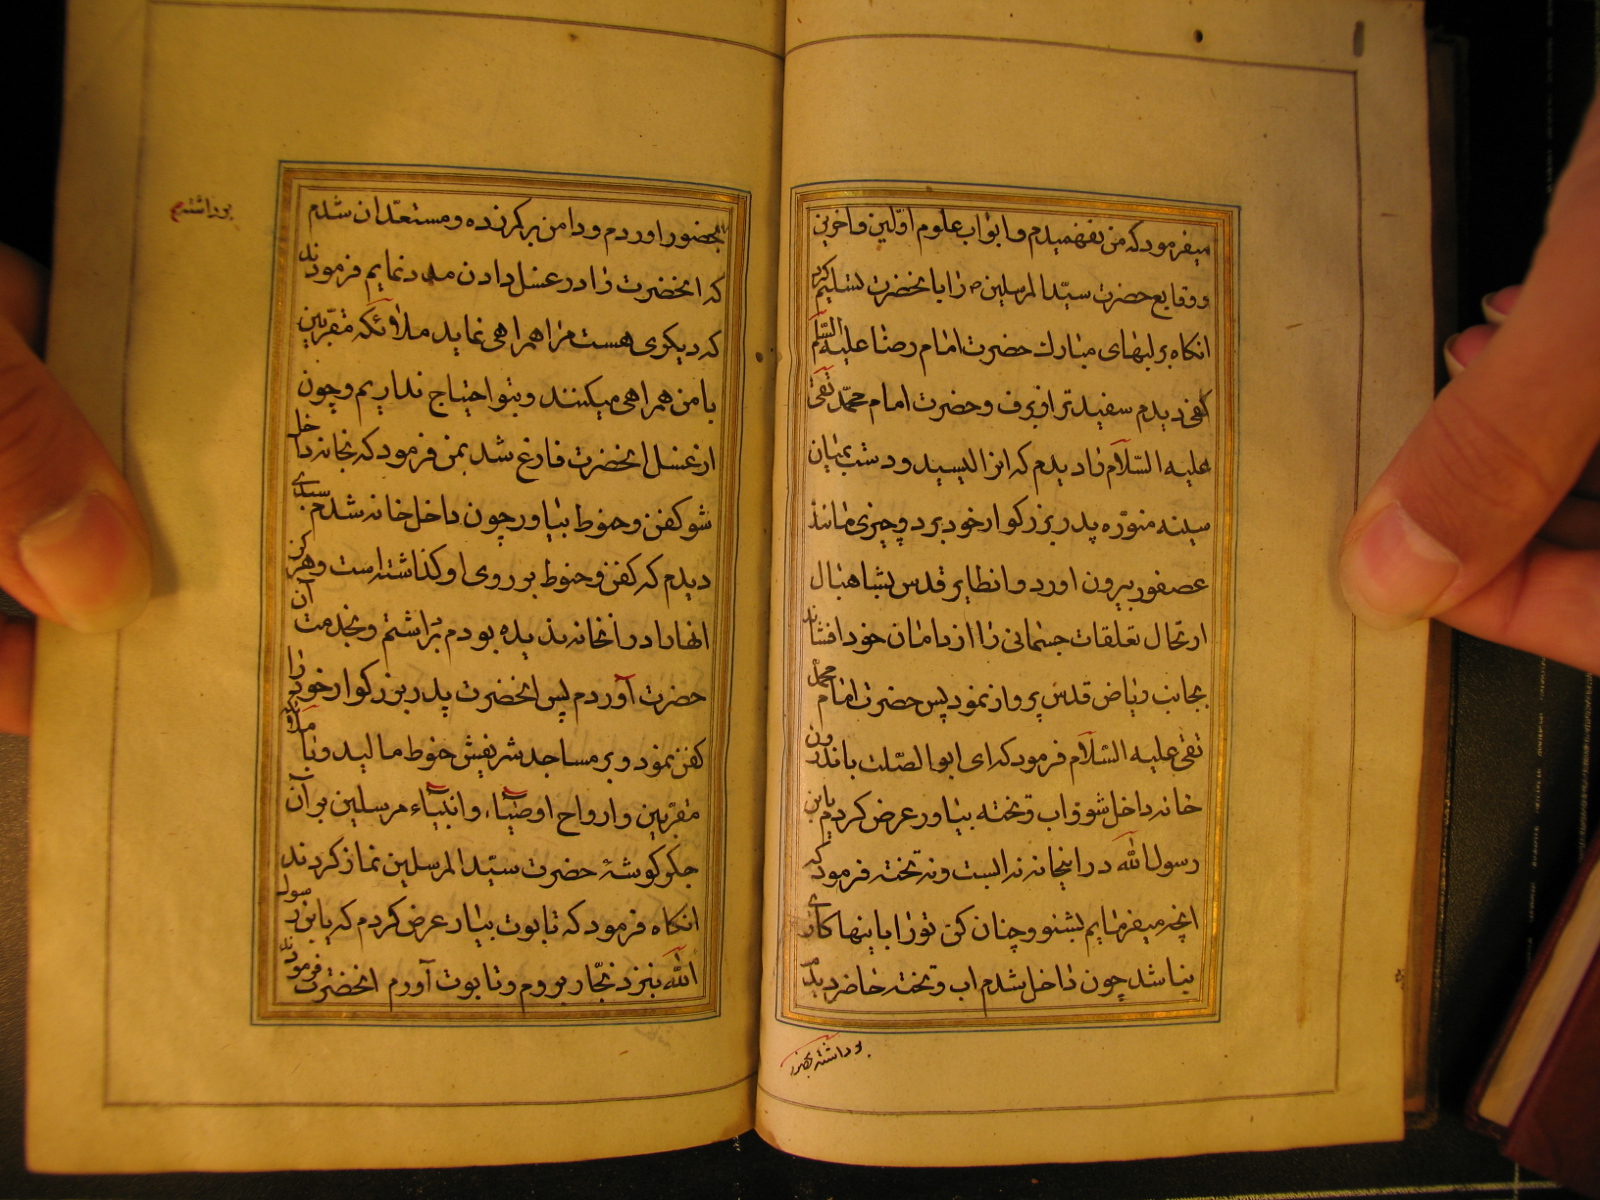 میفرمود که من نفهمیدم و ابواب علوم اوّلین و آخرین
و وقایع حضرت سیّد المرسلین ص را بانحضرت تسلیم کرد
انکاه بر لبهای مبارك حضرت امام رضا علیه السّلم
کفی دیدم سفیدتر از برف و حضرت امام محمّد تقی
علیه السّلام را دیدم که انرا لیسید و دست بمیان
سینه منوّره پدر بزرکوار خود برد و چیزی مانند
عصفور بیرون اورد و انطایر قدس بشاهبال
ارتحال تعلقات جسمانی را از دامان خود افشاند
بجانب ریاض قدس پرواز نمود پس حضرت امام محمّد
تقی علیه السّلام فرمود که ای ابو الصّلت باندرون
خانه داخل شو و اب و تخته بیاور عرض کردم یابن
رسول الله در اینخانه نه ابست و نه تخته فرمود که
انچه میفرمایم بشنو و چنان کن تورا باینها کاری
نباشد چون داخل شدم اب و تخته حاضر دیدم
برداشته بحضور
بحضور اوردم و دامن بر کرزده و مستعدّ ان شدم
برداشتم
که انحضرت را در غسل دادن مدد نمایم فرمودند
که دیکری هست مرا همراهی نماید ملائکه مقرّبین
با من همراهی میکنند و بتو احتیاج نداریم و چون
از غسل انحضرت فارغ شد بمن فرمود که بخانه داخل
شو کفن و حنوط بیاور چون داخل خانه شدم سبدی
دیدم که کفن و حنوط بر روی او کذاشته است و هرکز
انها را در انخانه ندیده بودم برداشتم و بخدمت آن
حضرت آوردم پس انحضرت پدر بزرکوار خود را
کفن نمود و بر مساجد شریفش حنوط مالید و با ملائکه
مقرّبین و ارواح اوصیاء و انبیاء مرسلین بر آن
جکرکوشهٔ حضرت سیّد المرسلین نماز کردند
انکاه فرمود که تابوت بیار عرض کردم که یابن رسول
الله بنزد نجّار بروم و تابوت آورم انحضرت فرمودند